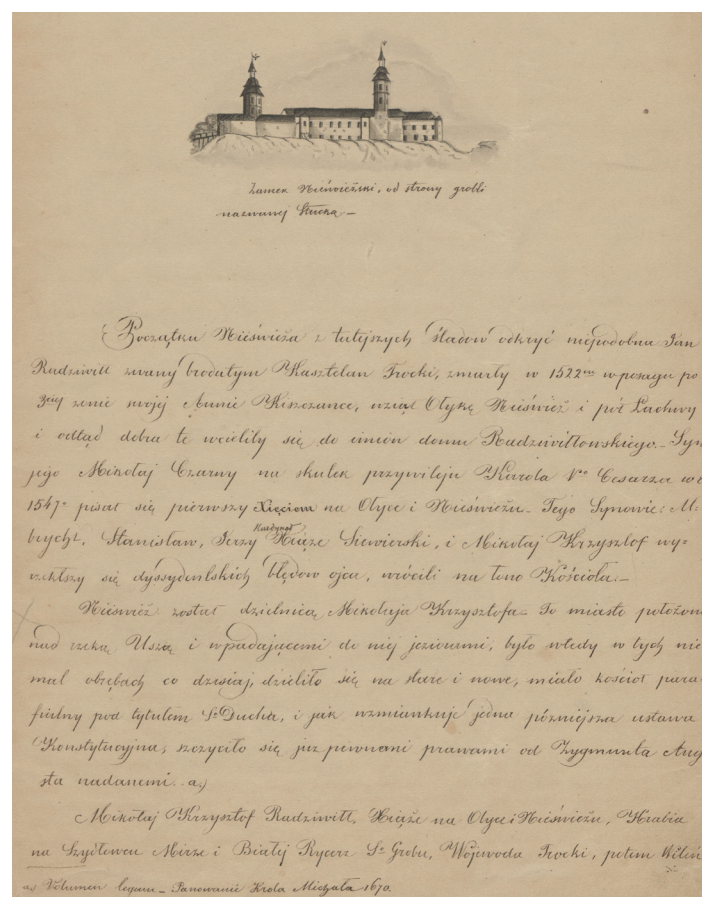 Zamek Nieświżski, od strony grobli
nazwanej Słucka –
Początku Nieświeża z tutejszych śladów odkryć niepodobna Jan
Radziwiłł zwany brodatym Kasztelan Trocki, zmarły w 1522 w posagu po
żonie swojéj Annie Kiszczance, wziął Ołykę Nieśwież i pół Lachwy
i odtąd dobra te wcieliły się do imión domu Radziwiłłowskiego. – Syn
jego Mikołaj Czarny na skutek przywileju Karola Vo Cesarza we
1547o pisał się pierwszy Xięciem na Ołyce i Nieświeżu. Tego Synowie: Al-
brycht, Stanisław, Jerzy Kardynał Xiąże Siewierski, i Mikołaj Krzysztof wy-
rzekłszy się dyssydentskich błędów ojca, wrócili na łono Kościoła. –
Nieśwież został dzielnicą Mikołaja Krzysztofa – To miasto położon
nad rzeką Uszą i wpadającemi do niéj jeziorami, było wtedy w tych nie
mal obrębach co dzisiaj, dzieliło się na stare i nowe, miało kościoł para
fialny pod tytułem So Ducha, i jak wzmiankuje jedna późniejsza ustawa
Konstytucyjna, szczyciło się już pewnemi prawami od Zygmunta Aug
sta nadanemi. a)
Mikołaj Krzysztof Radziwiłł, Xiąże na Ołyce i Nieświeżu, Hrabia
na Szydłowcu Mirze i Białej Rycerz So Grobu, Wojewoda Trocki, potem Wileń
a) Volumen legum – Panowanie Króla Michała 1670.